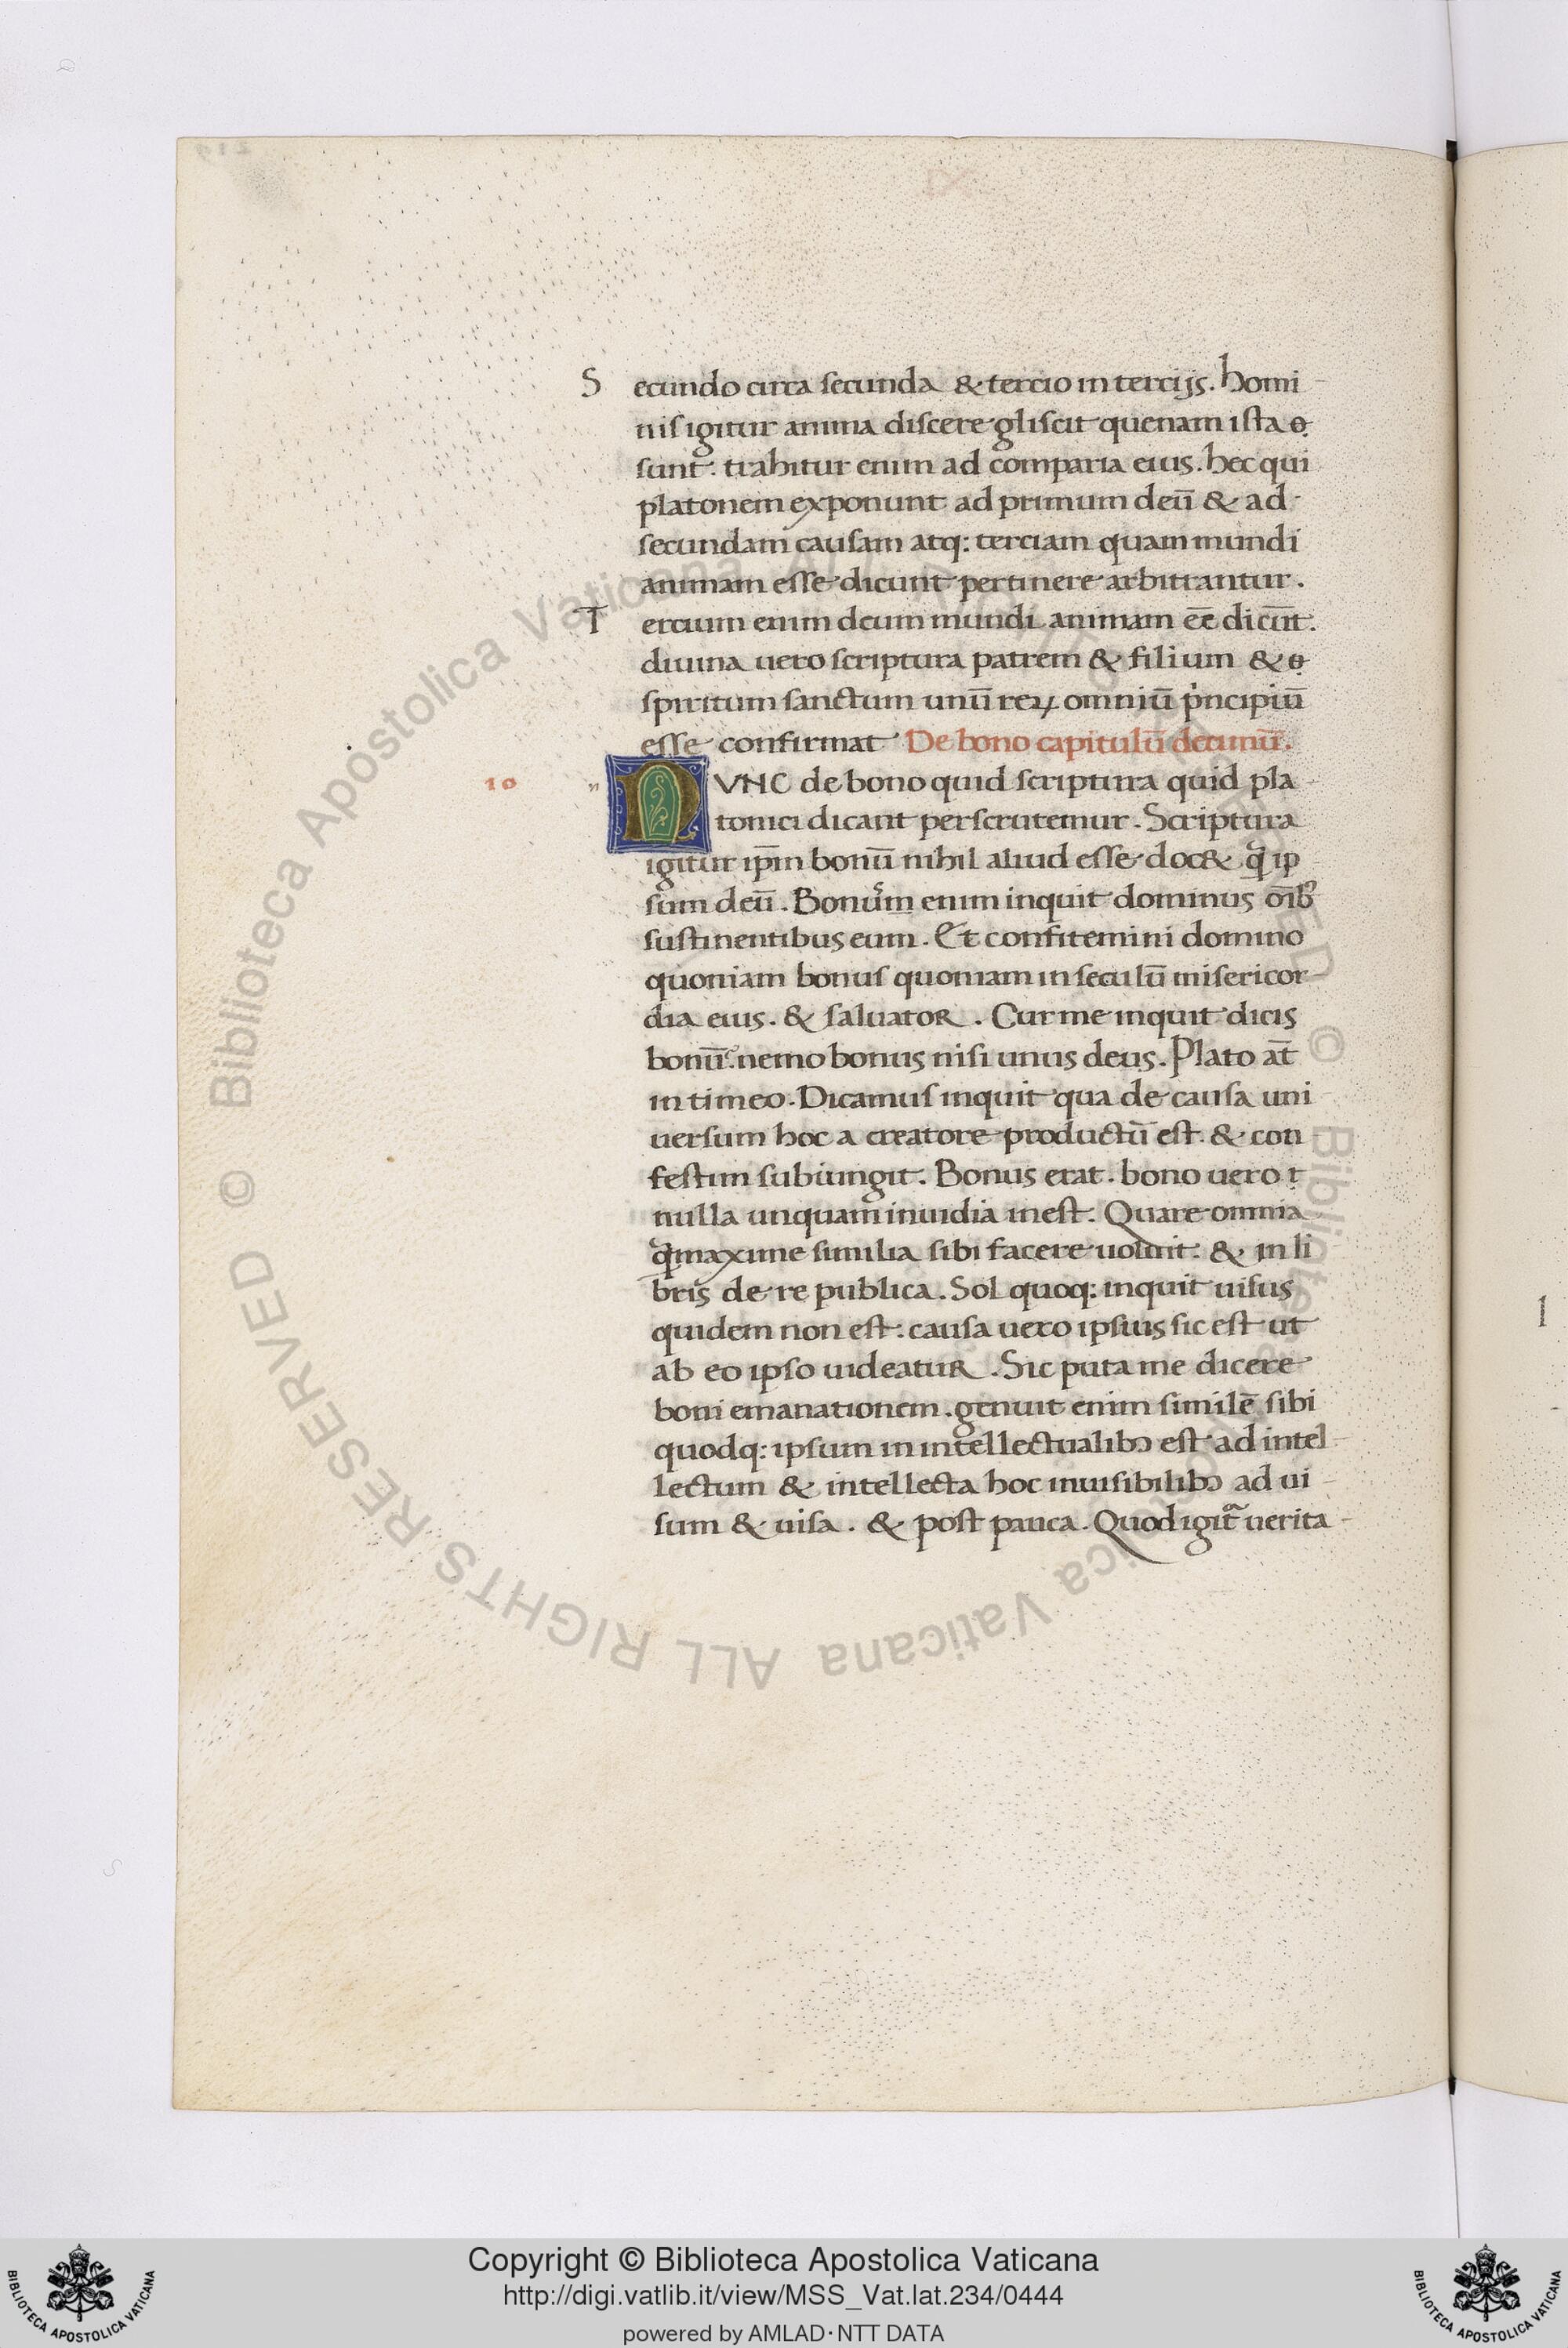 Secundo circa secunda & tercio in tercijs. homi
nis igitur anima discere gliscit quenam ista
sunt: trahitur enim ad comparia eius. hec qui
platonem exponunt ad primum deū & ad
secundam causam atq: terciam quam mundi
animam esse dicunt pertinere arbitrantur.
Tercium enim deum mundi animam eē̄ dicūt.
diuina uero scriptura patrem & filium &
spiritum sanctum unū reꝝ omniū p̍ncipiū
esse confirmat De bono capitulū decimū.
10 NVNC de bono quid scriptura quid pla
tonici dicant perscrutemur. Scriptura
igitur ip̄m bonū nihil aliud esse doc& ip
sum deū. enim inquit dominus oīb⁹
sustinentibus eum. Et confitemini domino
quoniam bonus quoniam in seculū misericor
dia eius. & saluator. Cur me inquit dicis
bonū: nemo bonus nisi unus deus. Plato at̄
in timeo. Dicamus inquit qua de causa uni
uersum hoc a creatore productū est. & con
festim subiungit. Bonus erat. bono uero
nulla unquam inuidia inest. Quare omnia
maxime similia sibi facere uoluit. & in li
bris de re publica. Sol quoq: inquit uisus
quidem non est: causa uero ipsius sic est ut
ab eo ipso uideatur. Sic puta me dicere
boni emanationem. genuit enim similē sibi
quodq: ipsum in intellectualibꝫ est ad intel
lectum & intellecta hoc inuisibilibꝫ ad ui
sum & uisa. & post pauca. Quod igit᷑ uerita
© Biblioteca Apostolica Vaticana ALL RIGHTS RESERVED © Biblioteca Apostolica Vaticana ALL RIGHTS RESERVED
BIBLIOTECA APOSTOLICA VATICANA
Copyright © Biblioteca Apostolica Vaticana
http://digi.vatlib.it/view/MSS_Vat.lat.234/0444
powered by AMLAD·NTT DATA
BIBLIOTECA APOSTOLICA VATICANA